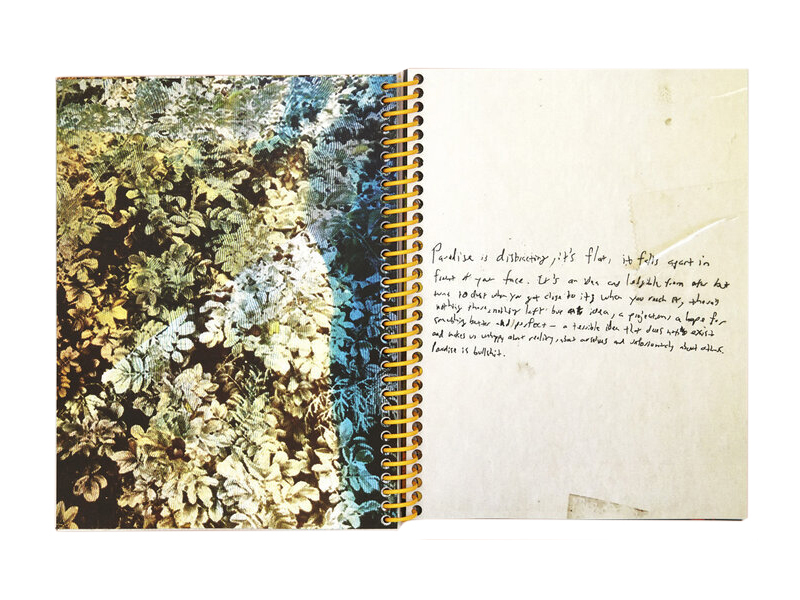 Paradise is distracting, it's flat, it falls apart in
front of your face. It's an idea and legible from afar but
when you get close to it, when you reach it, there's
nothing there, nothing left but an idea, a projection, a hope for
something better and perfect – a terrible idea that does not exist
and makes us unhappy about reality, about ourselves and unfortunately about others.
Paradise is bullshit.